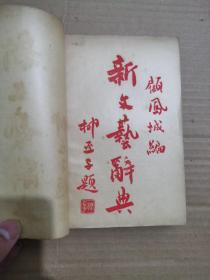 顧鳳城編
新文藝辭典
柳亞子題